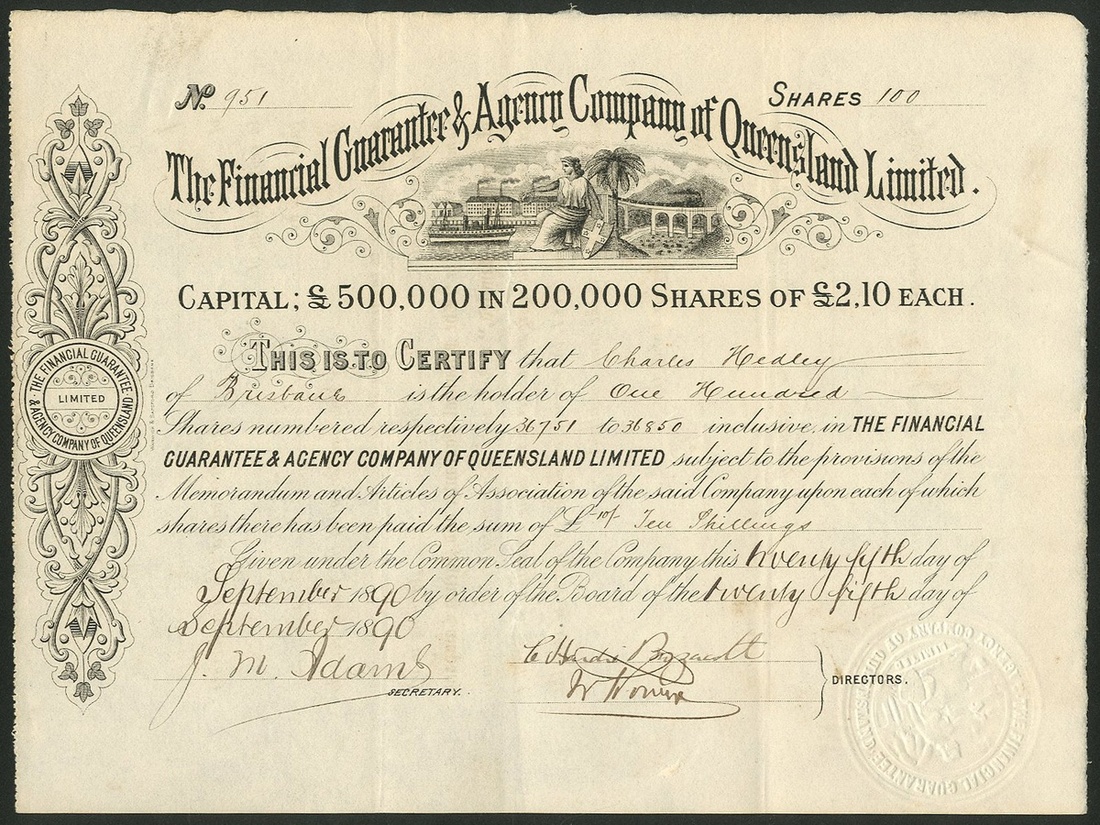 No. 951
SHARES 100
The Financial Guarantee & Agency Company of Queensland Limited.
CAPITAL; £500,000 IN 200,000 SHARES OF £2,10 EACH.
THIS IS TO CERTIFY that Charles Hedley
of Brisbane is the holder of One Hundred
Shares numbered respectively 36751 to 36850 inclusive, in THE FINANCIAL
GUARANTEE & AGENCY COMPANY OF QUEENSLAND LIMITED subject to the provisions of the
Memorandum and Articles of Association of the said Company upon each of which
shares there has been paid the sum of £-10/- Ten Shillings
Given under the Common Seal of the Company this twenty fifth day of
September 1890 by order of the Board of the twenty fifth day of
September 1890
J. M. Adams
SECRETARY.
DIRECTORS.
THE FINANCIAL GUARANTEE
& AGENCY COMPANY OF QUEENSLAND
LIMITED
THE FINANCIAL GUARANTEE
& AGENCY COMPANY OF QUEENSLAND
LIMITED